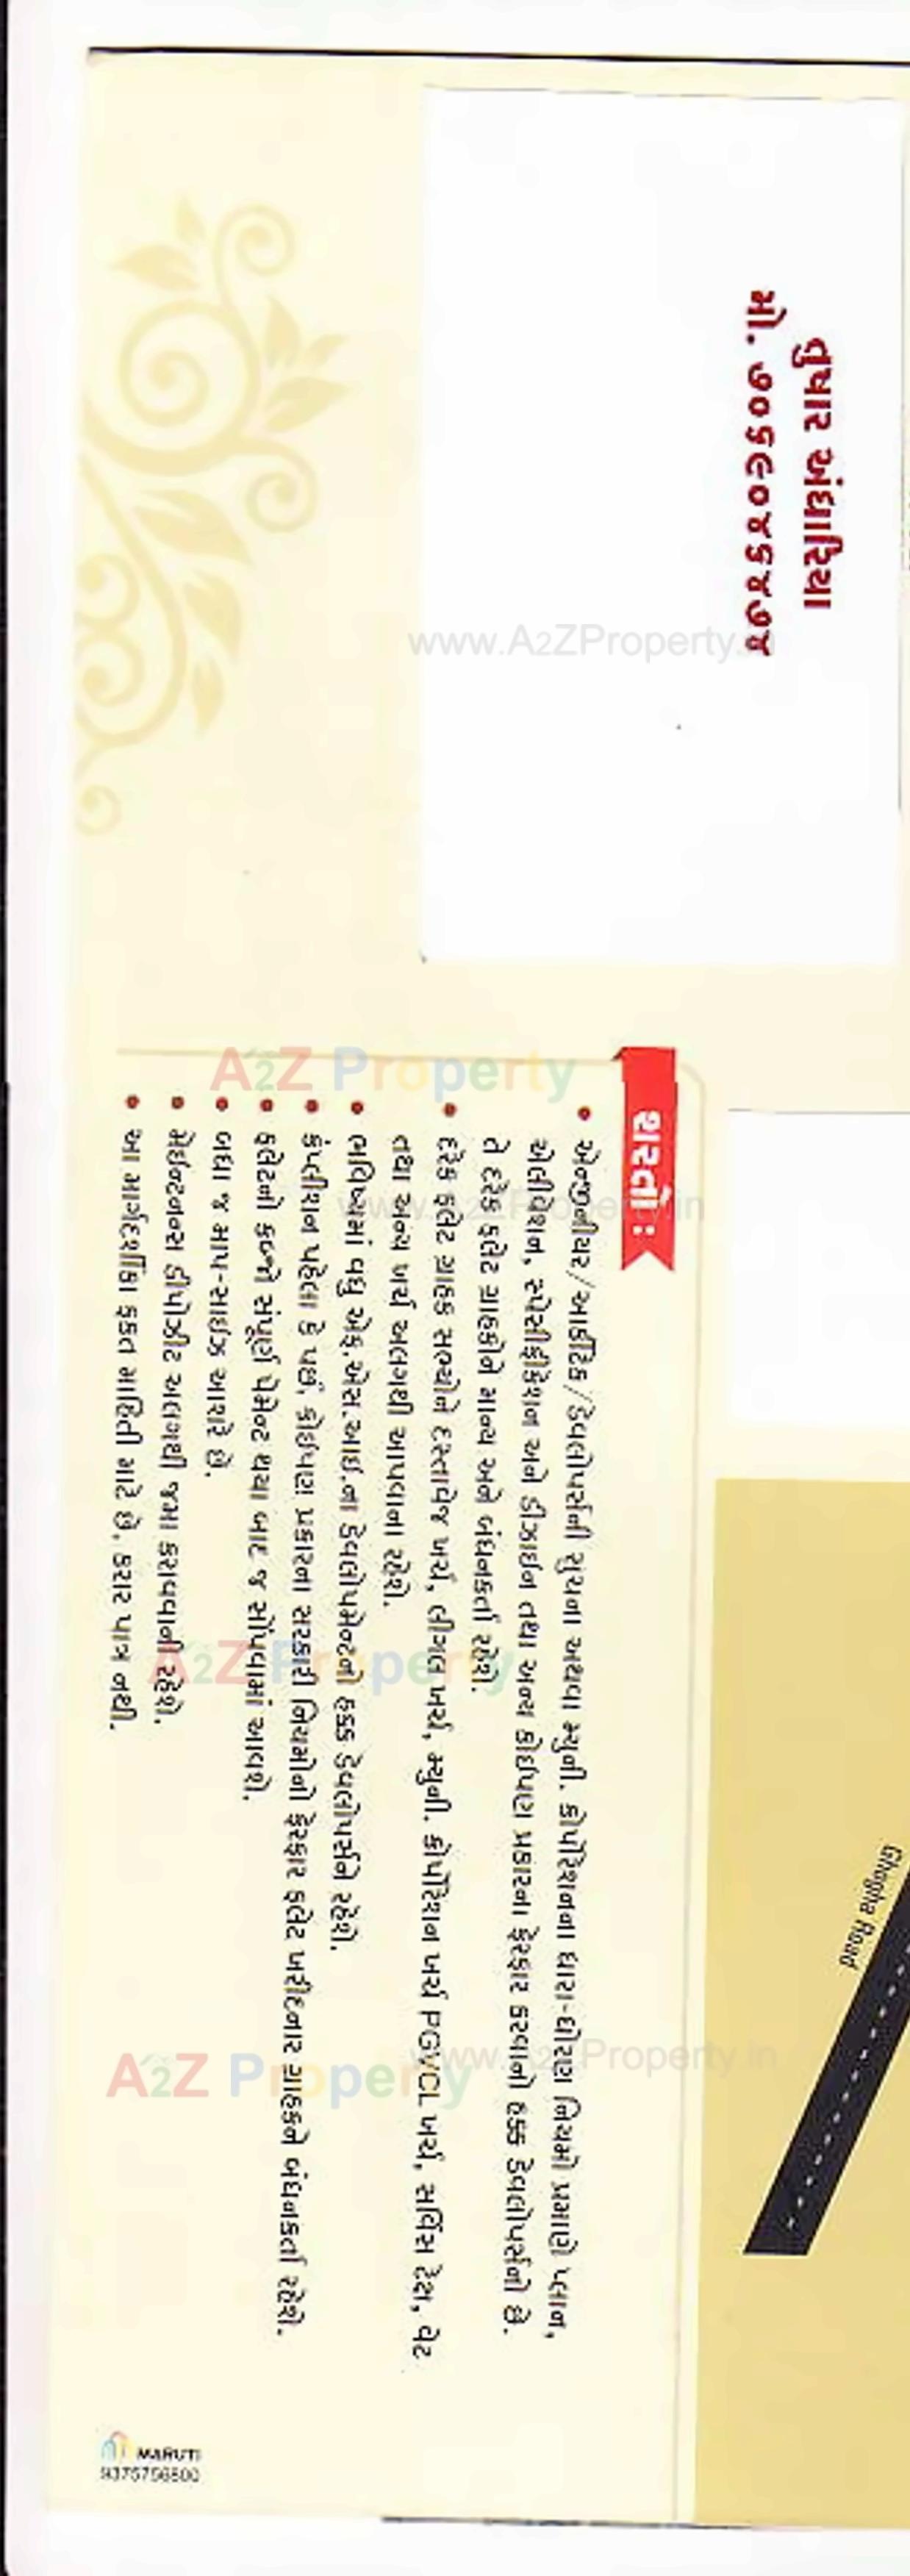 તુષાર અંધારિયા
મો. ૭૦૬૯૦૪૬૪૭૪
www.A2ZProperty.in
શરતો :
• એન્જીનીયર/આર્કીટેક/ડેવલોપર્સની સુચના અથવા મ્યુની. કોર્પોરેશનના ધારા-ધોરણ નિયમો પ્રમાણે પ્લાન,
એલીવેશન, સ્પેસીફીકેશન અને ડીઝાઇન તથા અન્ય કોઇપણ પ્રકારના ફેરફાર કરવાનો હક્ક ડેવલોપર્સનો છે.
તે દરેક ફ્લેટ ગ્રાહકોને માન્ય અને બંધનકર્તા રહેશે.
• દરેક ફ્લેટ ગ્રાહક સભ્યોને દસ્તાવેજ ખર્ચ, લીગલ ખર્ચ, મ્યુની. કોર્પોરેશન ખર્ચ PGVCL ખર્ચ, સર્વિસ ટેક્ષ, વેટ
તથા અન્ય ખર્ચ અલગથી આપવાના રહેશે.
• ભવિષ્યમાં વધુ એફ.એસ.આઇ.ના ડેવલોપમેન્ટનો હક્ક ડેવલોપર્સને રહેશે.
• કંપ્લીશન પહેલા કે પછી, કોઈપણ પ્રકારના સરકારી નિયમોનો ફેરફાર ફ્લેટ ખરીદનાર ગ્રાહકને બંધનકર્તા રહેશે.
• ફ્લેટનો કબ્જો સંપૂર્ણ પેમેન્ટ થયા બાદ જ સોંપવામાં આવશે.
• બધા જ માપ-સાઇઝ આશરે છે.
• મેઇન્ટેનન્સ ડીપોઝીટ અલગથી જમા કરાવવાની રહેશે.
• આ માર્ગદર્શીકા ફક્ત માહિતી માટે છે, કરાર પાત્ર નથી.
A2Z Property
www.A2ZProperty.in
A2Z Property
A2Z Property
www.A2ZProperty.in
Ghogha Road
MARUTI
9375756800